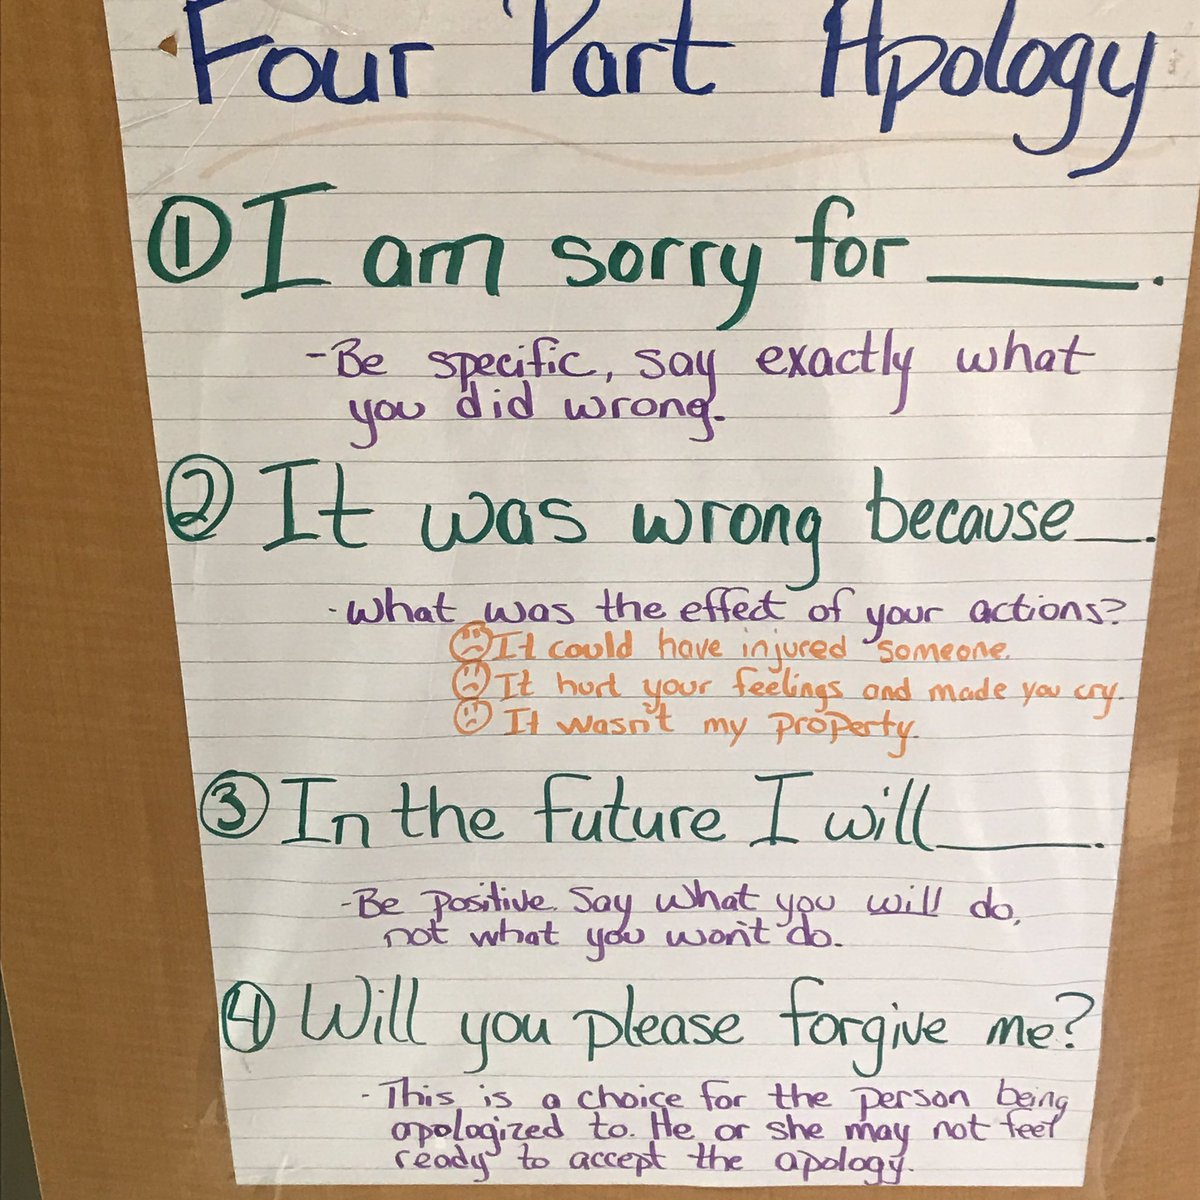 Four Part Apology
① I am sorry for ______.
- Be specific, say exactly what
you did wrong.
② It was wrong because ___.
- What was the effect of your actions?
It could have injured someone.
It hurt your feelings and made you cry.
It wasn't my property.
③ In the future I will ______.
- Be positive. Say what you will do,
not what you won't do.
④ Will you please forgive me?
- This is a choice for the person being
apologized to. He or she may not feel
ready to accept the apology.